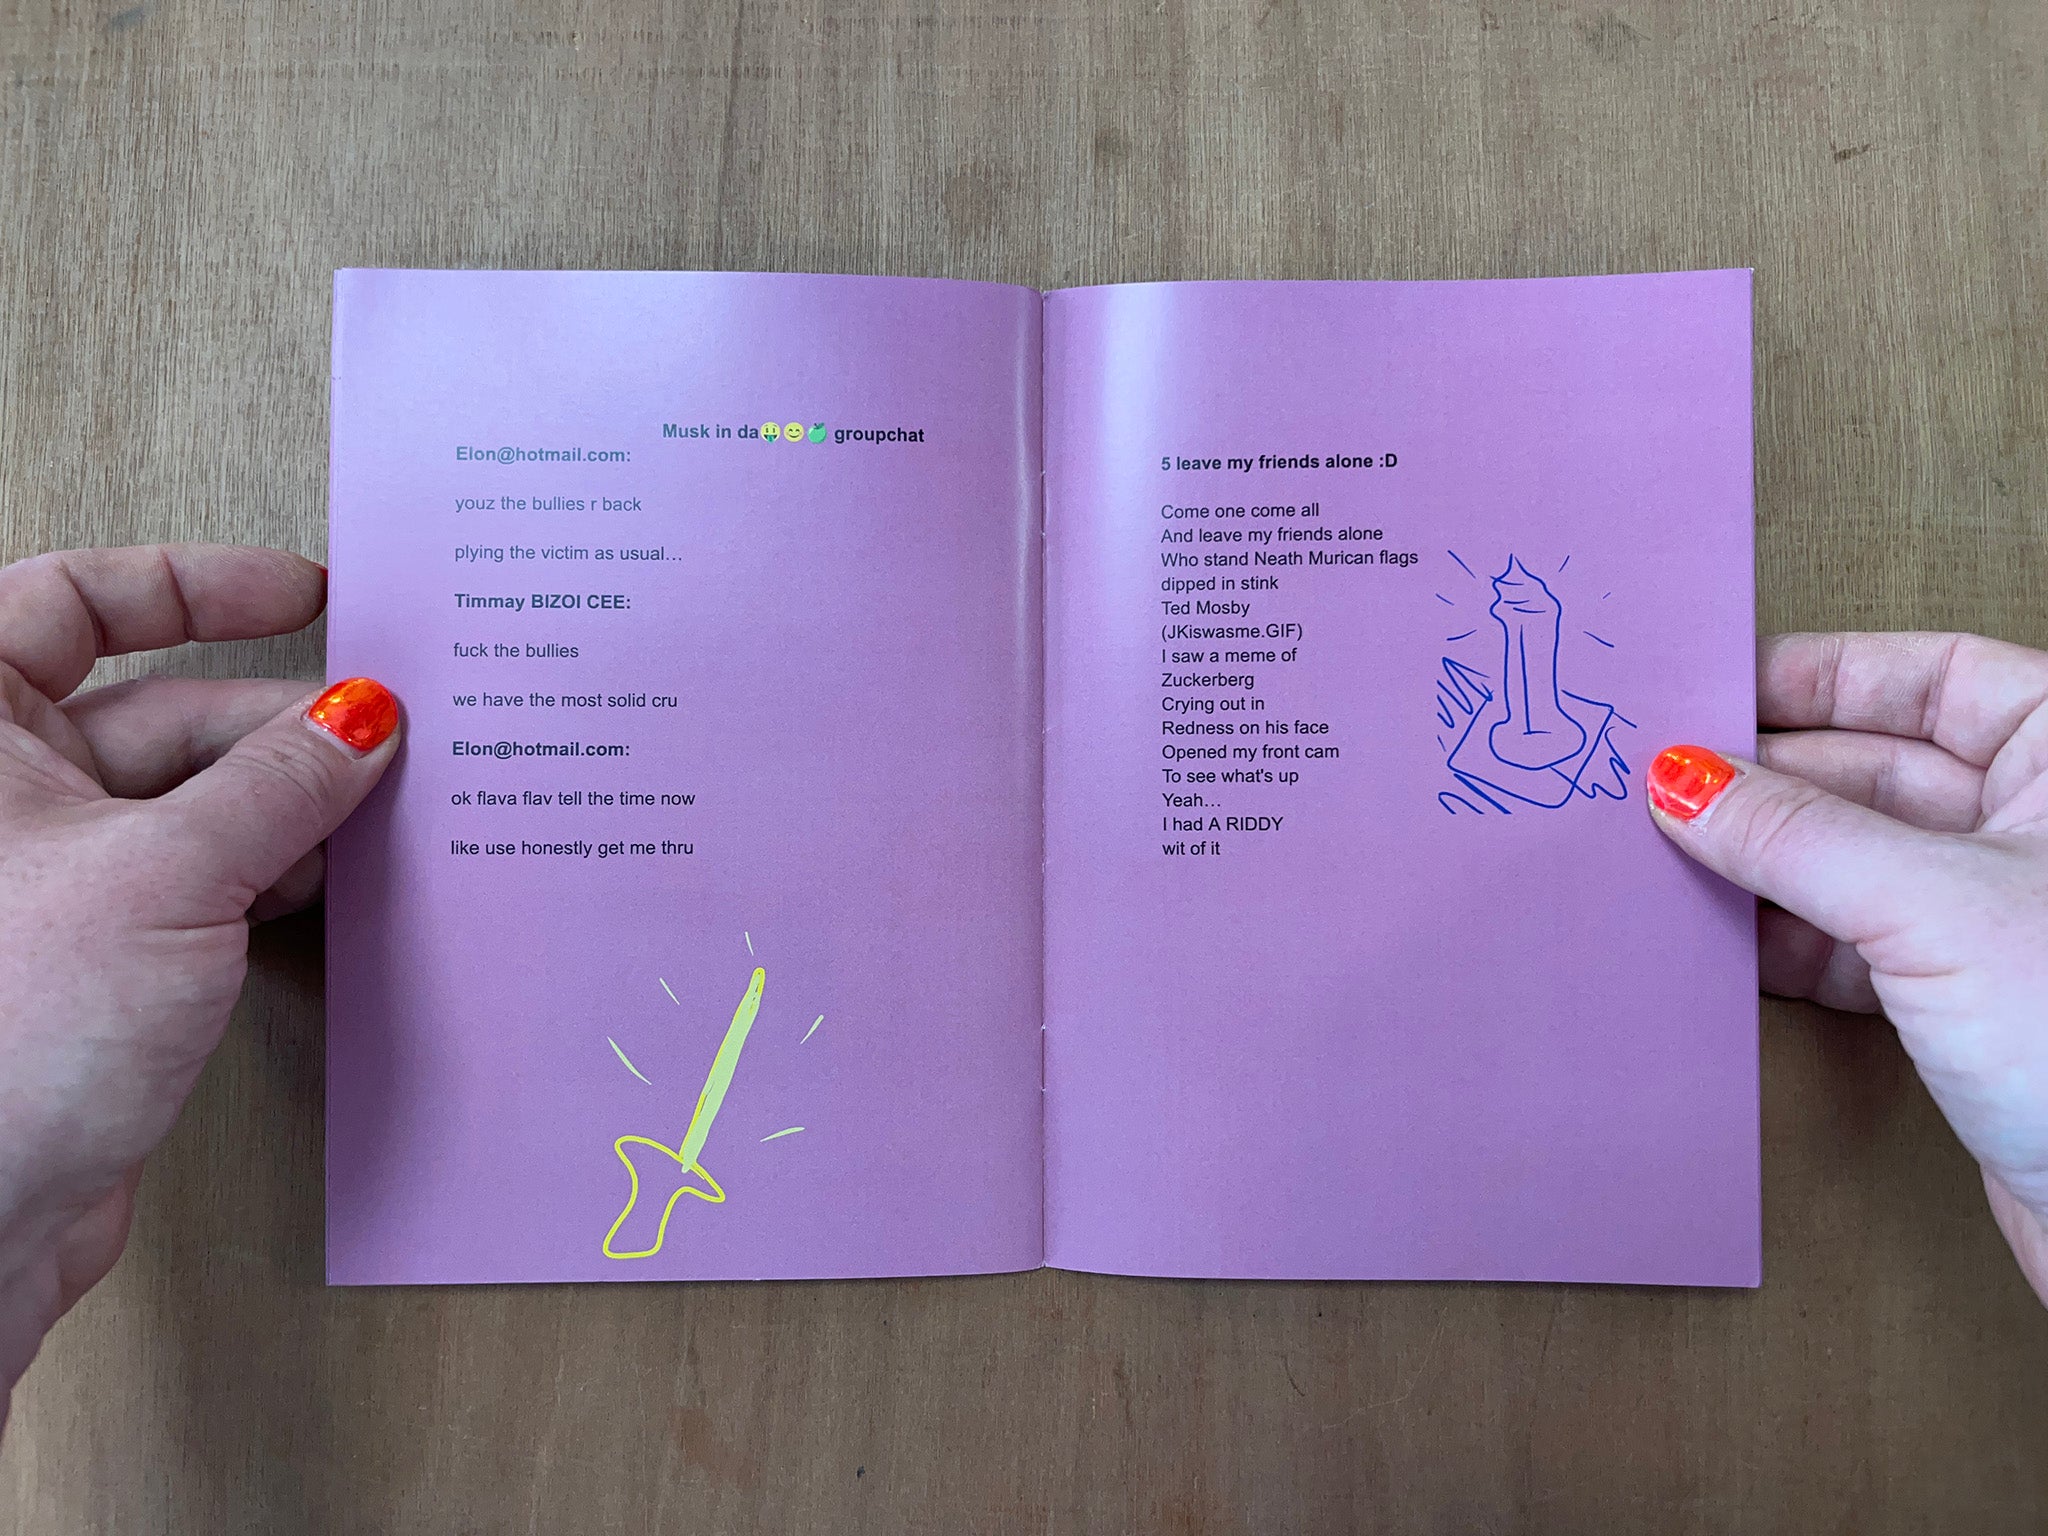 Musk in da🤑😊🍏 groupchat
Elon@hotmail.com:
youz the bullies r back
plying the victim as usual…
Timmay BIZOI CEE:
fuck the bullies
we have the most solid cru
Elon@hotmail.com:
ok flava flav tell the time now
like use honestly get me thru
5 leave my friends alone :D
Come one come all
And leave my friends alone
Who stand Neath Murican flags
dipped in stink
Ted Mosby
(JKiswasme.GIF)
I saw a meme of
Zuckerberg
Crying out in
Redness on his face
Opened my front cam
To see what's up
Yeah…
I had A RIDDY
wit of it